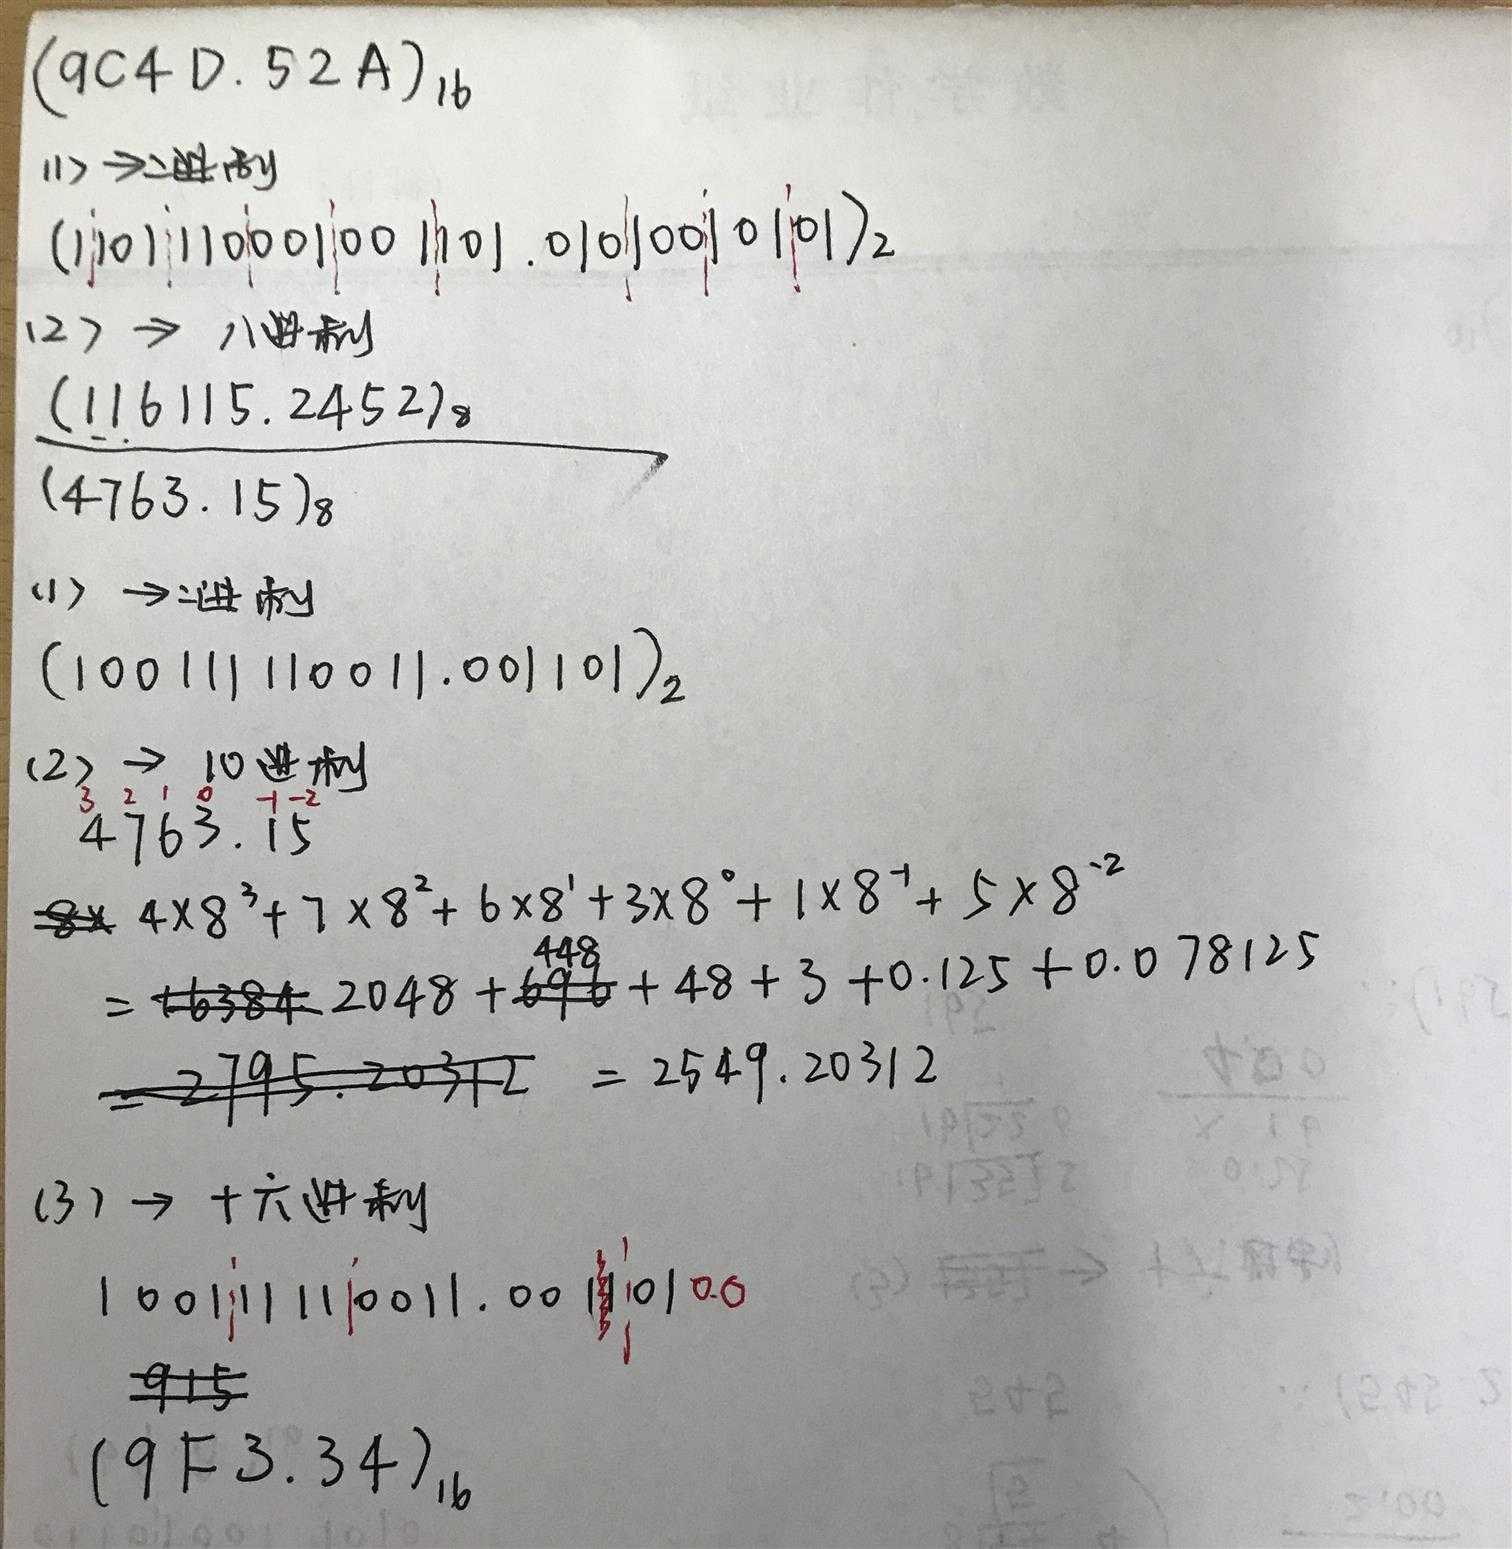 (9C4D.52A)16
(1) → 二进制
(1101110001001101.010100101 01)2
(2) → 八进制
(116115.2452)8
(4763.15)8
(1) → 二进制
(100111110011.001101)2
(2) → 10进制
3 2 1 0 -1 -2
4763.15
4×8³+7×8²+6×8¹+3×8⁰+1×8⁻¹+5×8⁻²
448
= 16384 2048 + 696 + 48 + 3 + 0.125 + 0.078125
= 2795.20312 = 2549.20312
(3) → 十六进制
100111110011.00110100
915
(9F3.34)16